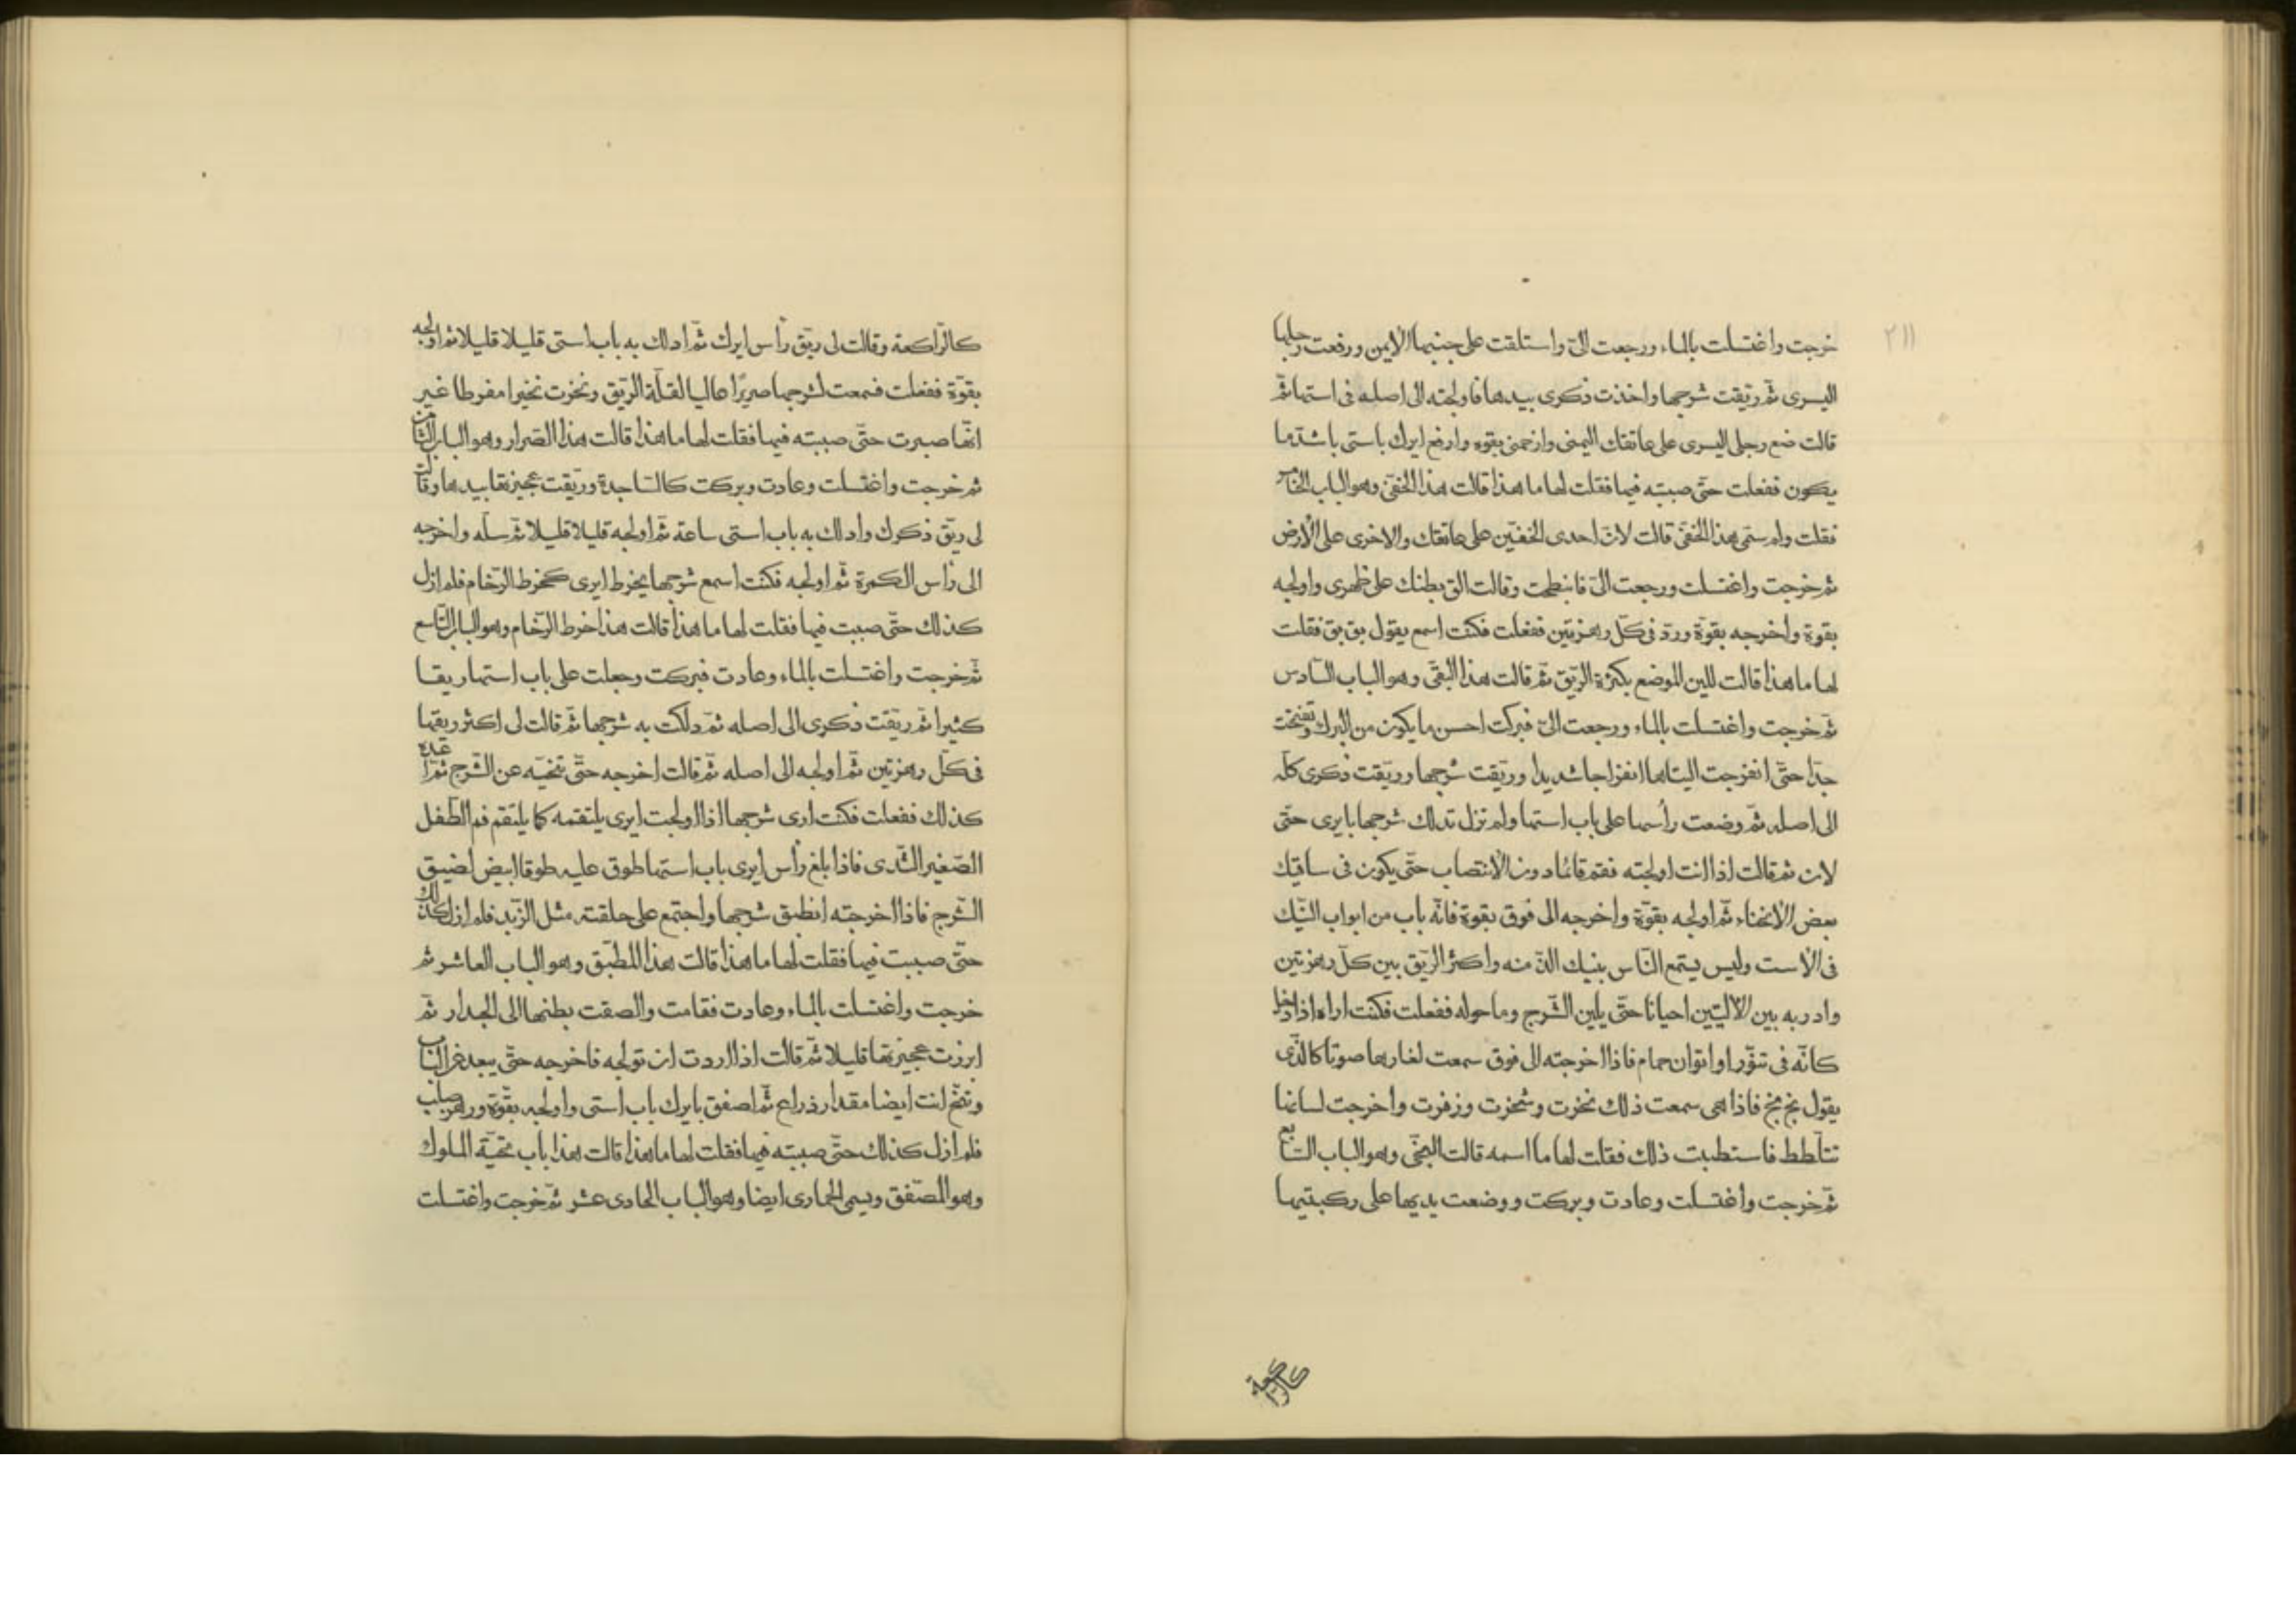 ٢١١
خرجت واغتسلت بالماء ورجعت الىّ واستلقت على جنبها الايمن ورفعت رجلها
اليسرى ثمّ ريّقت شرجها واخذت ذكرى بيدها فاولجته الى اصله فى استها ثمّ
قالت ضع رجلى اليسرى على عاتقك اليمنى وازحمنى بقوه وارفع ايرك باستى باشدّ ما
يكون ففعلت حتّى صببته فيها فقلت لها ما هذا قالت هذا الخفىّ وهو الباب الخامس
فقلت ولم سمّى هذا الخفىّ قالت لانّ احدى الخفّين على عاتقك والاخرى على الارض
ثم خرجت واغتسلت ورجعت الىّ فانبطحت وقالت الق بطنك على ظهرى واولجه
بقوة واخرجه بقوّة وردّ فى كلّ رهزتين ففعلت فكنت اسمع يقول بق بق فقلت
لها ما هذا قالت للين الموضع بكثرة الريّق ثمّ قالت هذا البقىّ وهو الباب السّادس
ثمّ خرجت واغتسلت بالماء ورجعت الىّ فبركت احسن ما يكون من البرك وتفتحت
جدّا حتّى انفرجت اليتاها انفراجا شديدا وريّقت شرجها وريّقت ذكرى كلّه
الى اصله ثمّ وضعت رأسها على باب استها ولم تزل تدلك شرجها بايرى حتّى
لان ثم قالت اذا انت اولجته فقم قائما دون الانتصاب حتّى يكون فى ساقيك
بعض الانحناء ثمّ اولجه بقوّة واخرجه الى فوق بقوة فانّه باب من ابواب النّيك
فى الاست وليس يستمتع النّاس بنيك الذّ منه واكثر الريّق بين كلّ رهزتين
وادر به بين الاليتين احيانا حتّى يلين الشّرج وما حوله ففعلت فكنت اراه اذا دخل
كانّه فى تنوّر او اتوان حمام فاذا اخرجته الى فوق سمعت لغارها صوتا كالذّى
يقول بخ بخ فاذا هى سمعت ذلك نخرت وشخرت وزفرت واخرجت لسانها
تتلطط فاستطبت ذلك فقلت لها ما اسمه قالت البخىّ وهو الباب السّابع
ثمّ خرجت واغتسلت وعادت وبركت ووضعت يديها على ركبتيها
كالرّاكعة
كالرّاكعة وقالت لى ريّق رأس ايرك ثمّ ادلك به باب استى قليلا قليلا ثم اولجه
بقوّة ففعلت فسمعت لشرجها صريرًا عاليا لقلّة الرّيق ونخرت نخيرا مفرطا غير
انّها صبرت حتّى صببته فيها فقلت لها ما هذا قالت هذا الصّرار وهو الباب الثّامن
ثم خرجت واغتسلت وعادت وبركت كالسّاجدة وريّقت عجيزتها بيدها وقالت
لى ريّق ذكرك وادلك به باب استى ساعة ثمّ اولجه قليلا قليلا ثمّ سلّه واخرجه
الى رأس الكمرة ثمّ اولجه فكنت اسمع شرجها يخرط ايرى كخرط الرّخام فلم ازل
كذلك حتّى صببت فيها فقلت لها ما هذا قالت هذا خرط الرّخام وهو الباب التّاسع
ثمّ خرجت واغتسلت بالماء وعادت فبركت وجعلت على باب استها ريقا
كثيرا ثمّ ريّقت ذكرى الى اصله ثمّ دلكت به شرجها ثمّ قالت لى اكثر ريقها
فى كلّ رهزتين ثمّ اولجه الى اصله ثمّ قالت اخرجه حتّى تنحّيه عن الشّرج ثمّ اعده
كذلك ففعلت فكنت ارى شرجها اذا اولجت ايرى يلتقمه كما يلتقم فم الطّفل
الصّغير الثّدى فاذا بلغ رأس ايرى باب استها طوق عليه طوقا ابيض لضيق
الشّرج فاذا اخرجته انطبق شرجها واجتمع على حلقته مثل الزّبد فلم ازل كذلك
حتّى صببت فيها فقلت لها ما هذا قالت هذا المطبّق وهو الباب العاشر ثم
خرجت واغتسلت بالماء وعادت فقامت والصقت بطنها الى الجدار ثمّ
ابرزت عجيزتها قليلا ثمّ قالت اذا اردت ان تولجه فاخرجه حتّى يبعد عن الباب
وتنحّ انت ايضا مقدار ذراع ثمّ اصفق بايرك باب استى واولجه بقوّة ورهز صلب
فلم ازل كذلك حتّى صببته فيها فقلت لها ما هذا قالت هذا باب تحيّة الملوك
وهو المصّفق ويسمى الحمارى ايضا وهو الباب الحادى عشر ثمّ خرجت واغتسلت